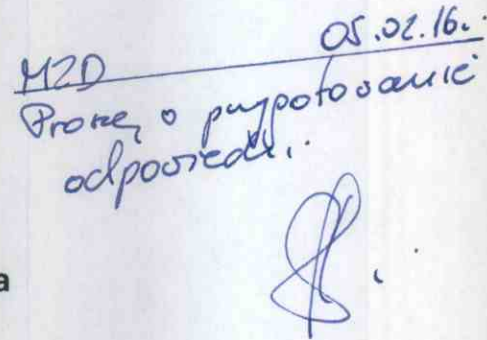 MZD 05.02.16.
Proszę o przygotowanie
odpowiedzi.
a